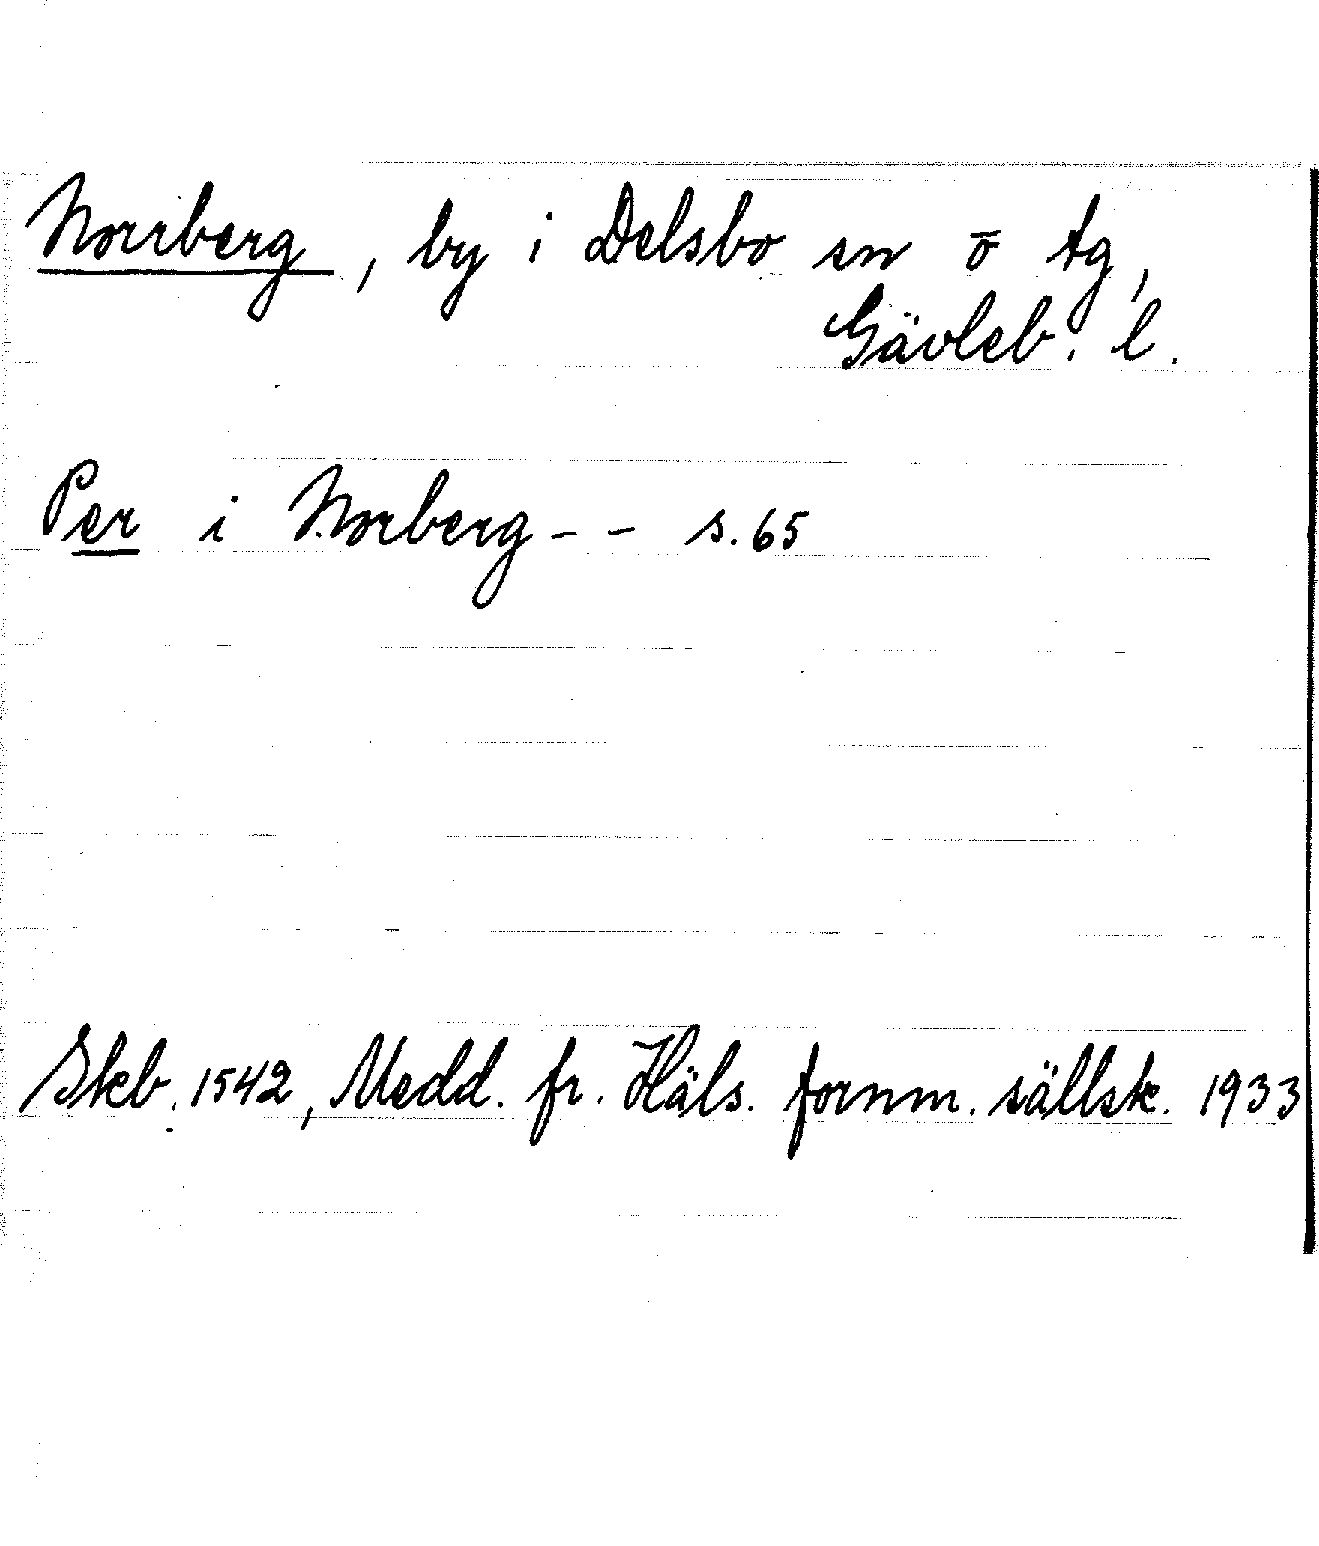 Norrberg, by i Delsbo sn ö tg,
Gävleb. l.
Per i Norberg - - s. 65
Skb. 1542, Medd. fr. Häls. fornm. sällsk. 1933